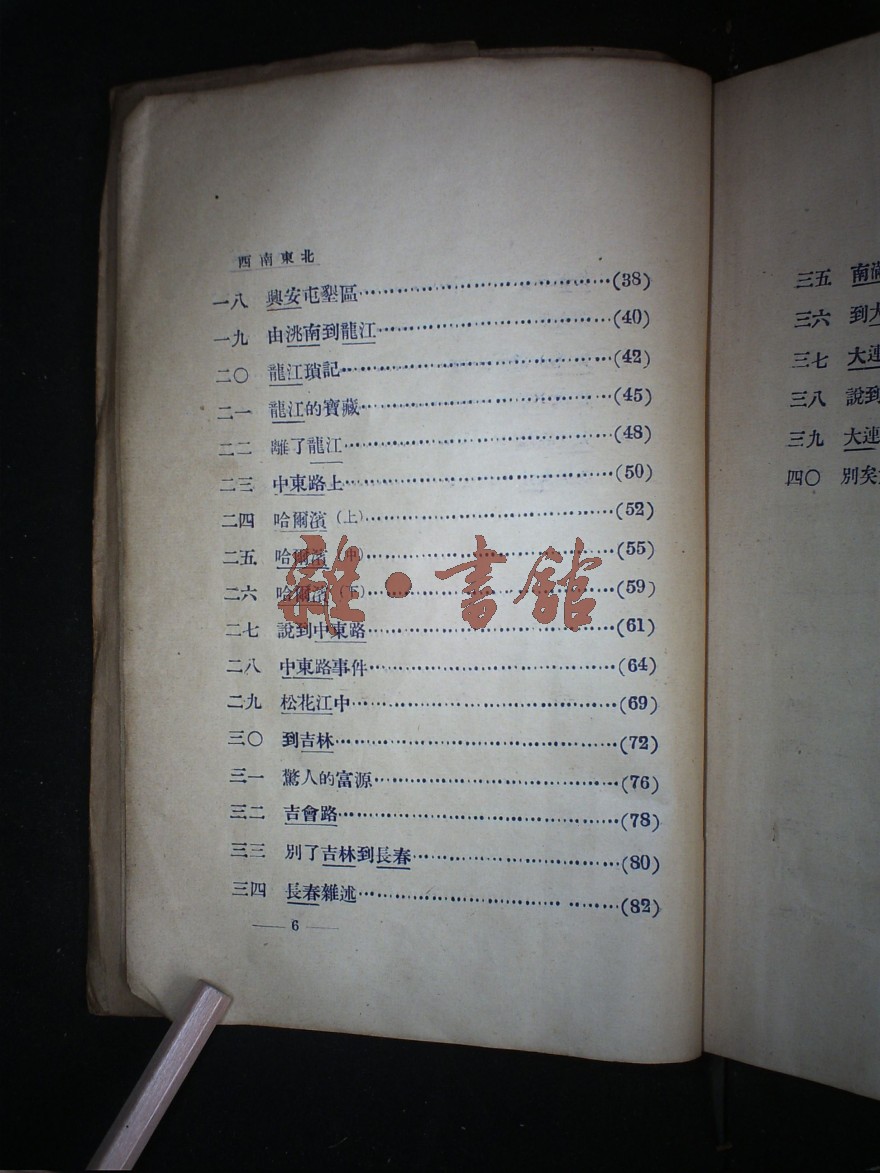 西南東北
一八 興安屯墾區……(38)
一九 由洮南到龍江……(40)
二〇 龍江瑣記……(42)
二一 龍江的寶藏……(45)
二二 離了龍江……(48)
二三 中東路上……(50)
二四 哈爾濱(上)……(52)
二五 哈爾濱(中)……(55)
二六 哈爾濱(下)……(59)
二七 說到中東路……(61)
二八 中東路事件……(64)
二九 松花江中……(69)
三〇 到吉林……(72)
三一 驚人的富源……(76)
三二 吉會路……(78)
三三 別了吉林到長春……(80)
三四 長春雜述……(82)
— 6 —
雜·書館
三五 南滿
三六 到大
三七 大連
三八 說到
三九 大連
四〇 別矣